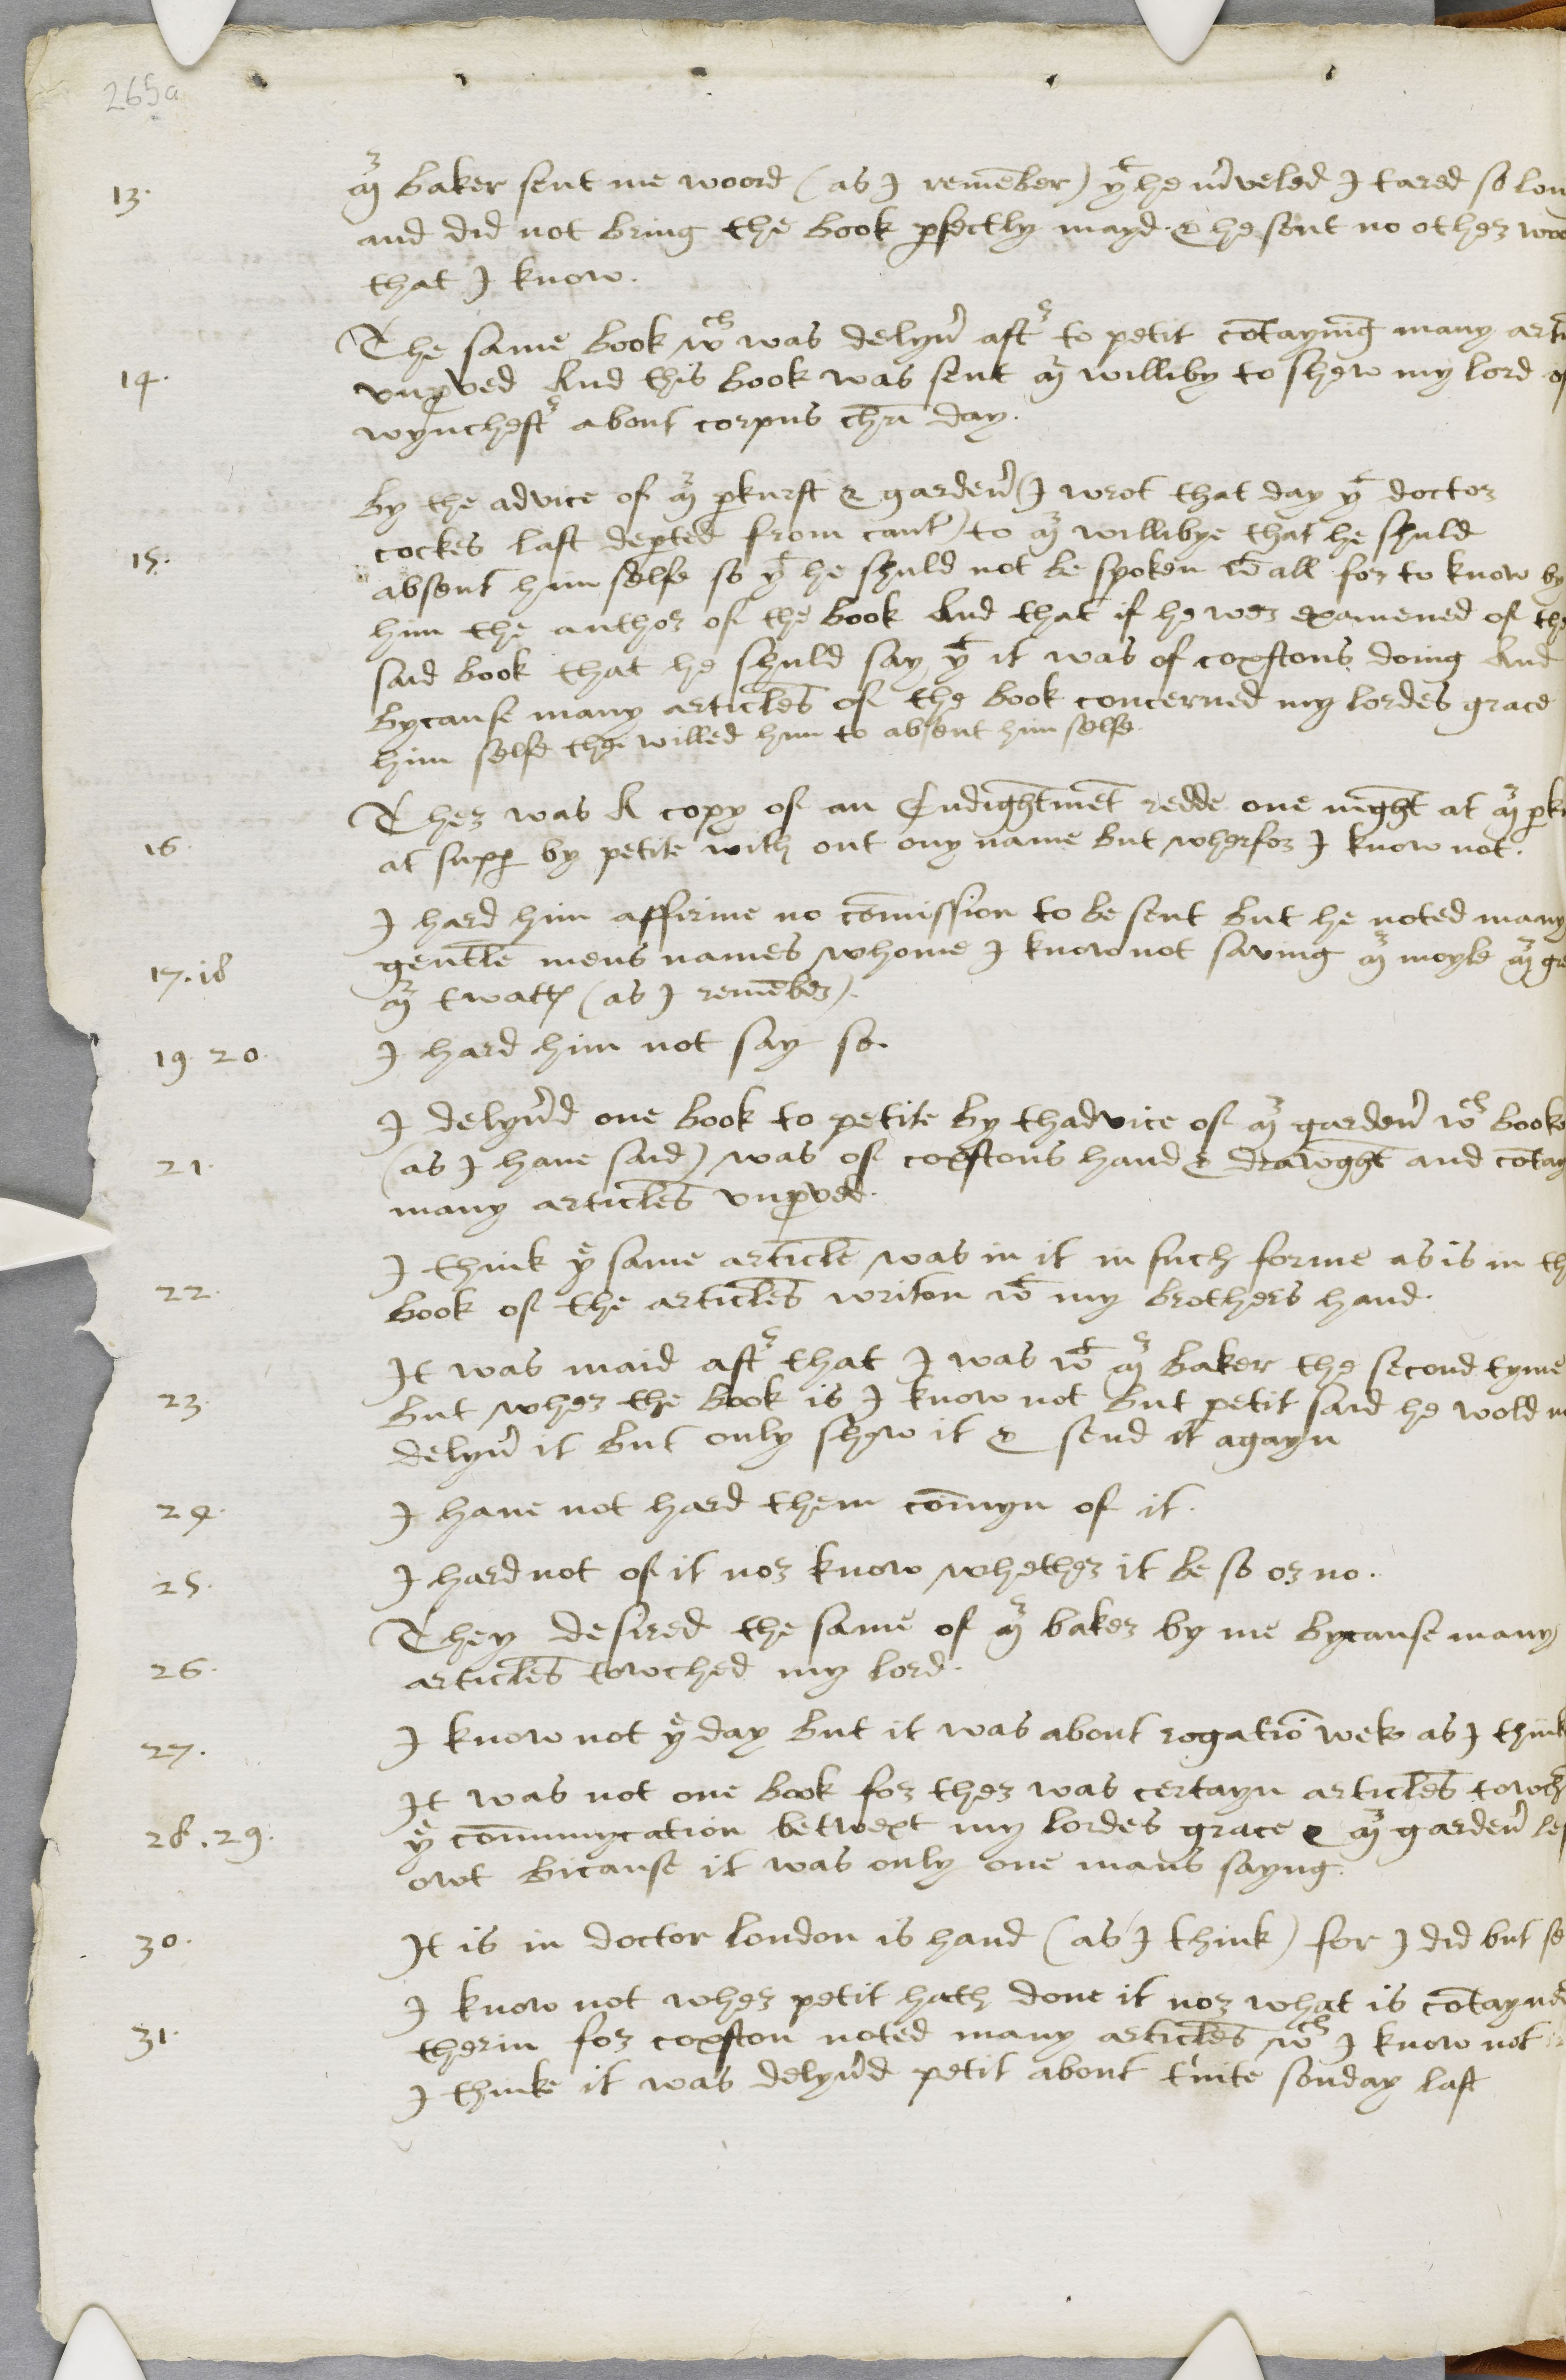 265a
13. Mr Baker sent me woord (as I remēber) yt he m̃veled I tared so lon
and did not bring the book ꝑfectly mayd. & he sent no other woo
that I know.
The same book wch was delyũ aftr to petit cōtayning many arti
14. vnꝓved And this book was sent Mr williby to shew my lord of
wynchestr about corpus chrī day.
By the advice of Mr ꝑkurst & gardeñ (I wrot that day yt doctor
cockes last deꝑted from cant) to Mr willibye that he shuld
15. absent him selfe so yt he shuld not be spoken wt all for to know by
him the author of the book And that if he wer examened of the
said book that he shuld say yt it was of coxstons doing And
bycause many articles of the book concerned my lordes grace
him selfe thei willed him to absent him selfe.
Ther was A copy of an Endightmēt redde one night at Mr ꝑk
16. at supꝑ by petite with out ony name but wherfor I know not.
I hard him affirme no cōmission to be sent but he noted many
17. 18 gentle mens names whome I know not saving Mr moyle Mr g
Mr twatt (as I remēber).
19. 20. I hard him not say so.
I delyũd one book to petite by thadvice of Mr gardeñ wch book
21. (as I have said) was of coxstons hand & drawght and cōtay
many articles vnꝓved.
I think ye same article was in it in such forme as is in th
22. book of the articles writon wt my brothers hand.
It was maid aftr that I was wt Mr Baker the second tyme
23. but wher the book is I know not but petit said he wold n
delyũ it but only shew it & send it agayn
24. I have not hard them cōmyn of it.
25. I hard not of it nor know whether it be so or no.
They desired the same of Mr baker by me bycause many
26. articles towched my lord.
27. I know not ye day but it was about rogatiō weke as I think
It was not one book for ther was certayn articles towch
28. 29. ye cōmmunycation betwext my lordes grace & Mr gardeñ lef
owt bicause it was only one mans sayng.
30. It is in doctor london is hand (as I think) for I did but se
I know not wher petit hath done it nor what is cōtayned
31. therin for coxston noted many articles wch I know not
I thinke it was delyũd petit about t'nite sonday last